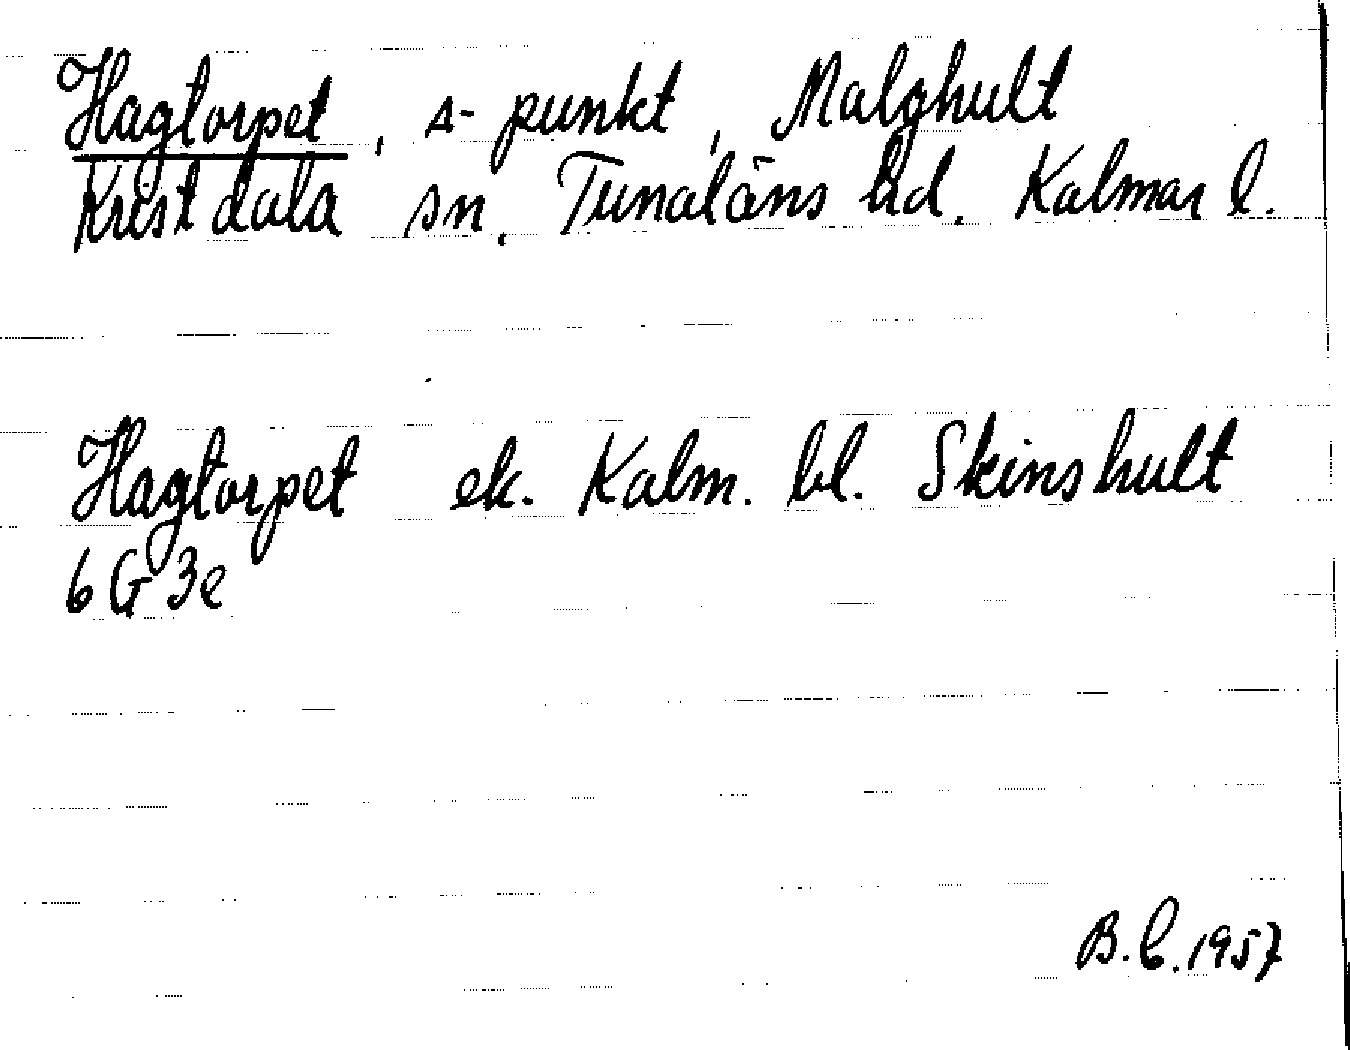 Hagtorpet, s-punkt, Malghult
Kristdala sn. Tunaläns hd. Kalmar l.
Hagtorpet ek. Kalm. bl. Skinshult
6G3e
B.C. 1957